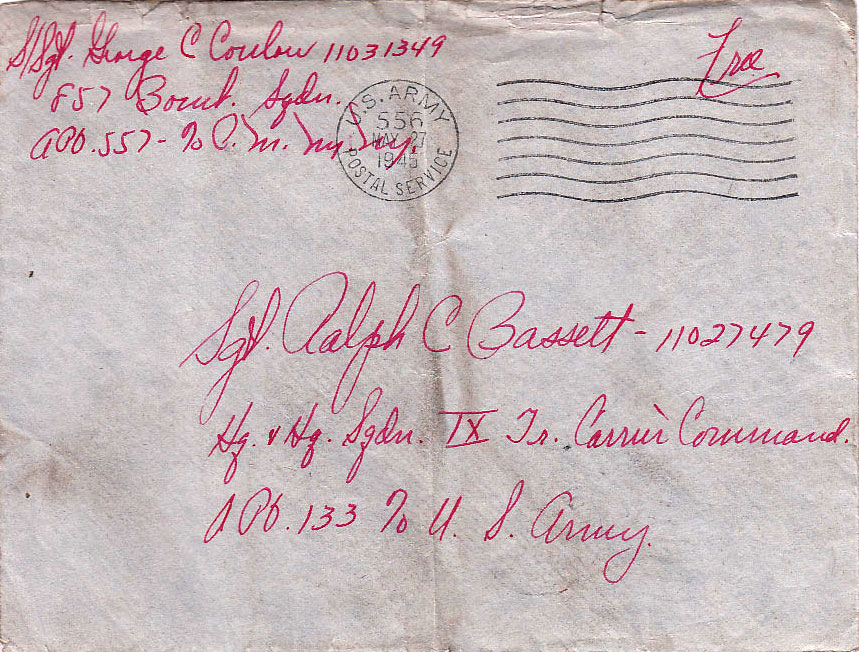 S/Sgt. George C Coulou 11031349
857 Bomb. Sqdn.
APO. 557 - % P. M. N.Y. N.Y.
Free
U.S. ARMY
556
MAY 27
1945
POSTAL SERVICE
Sgt. Ralph C Bassett - 11027479
Hq. & Hq. Sqdn. IX Tr. Carrier Command.
APO. 133 % U. S. Army.